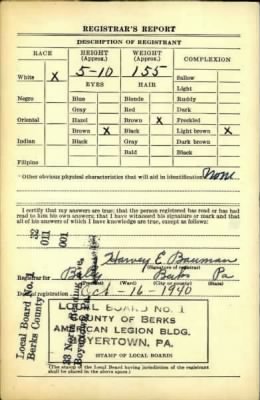 REGISTRAR'S REPORT
DESCRIPTION OF REGISTRANT
RACE HEIGHT (Approx.) WEIGHT (Approx.) COMPLEXION
White X 5-10 155 Sallow
EYES HAIR Light
Negro Blue Blonde Ruddy
Gray Red Dark
Oriental Hazel Brown X Freckled
Brown X Black Light brown X
Indian Black Gray Dark brown
Bald Black
Filipino
Other obvious physical characteristics that will aid in identification None
I certify that my answers are true; that the person registered has read or has had
read to him his own answers; that I have witnessed his signature or mark and that
all of his answers of which I have knowledge are true, except as follows:
32
011
001
Harvey E. Bauman
(Signature of registrar)
Registrar for Bally Berks Pa
(Ward) (City or county) (State)
Date of registration Oct-16-1940
Local Board No. 1
Berks County
LOCAL BOARD NO. 1
COUNTY OF BERKS
AMERICAN LEGION BLDG.
BOYERTOWN, PA.
STAMP OF LOCAL BOARD
(The stamp of the Local Board having jurisdiction of the registrant
shall be placed in the above space.)